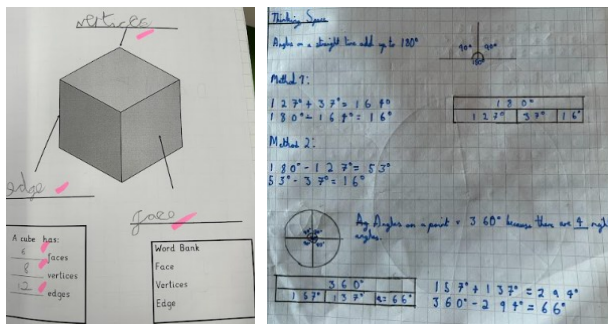 vertices
edge
face
A cube has:
6 faces
8 vertices
12 edges
Word Bank
Face
Vertices
Edge
Thinking Space
Angles on a straight line add up to 180°
90° 90°
180°
Method 1:
127° + 37° = 164°
180° - 164° = 16°
180°
127° 37° 16°
Method 2:
180 - 127° = 53°
53° - 37° = 16°
Angles on a point 360° because there are 4 right
angles.
360°
157° 137° a=66°
157° + 137° = 294°
360° - 294° = 66°